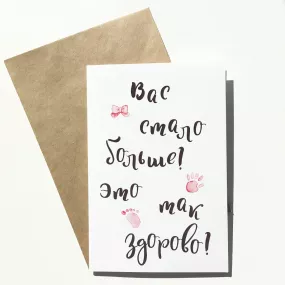 Вас
стало
больше!
Это
так
здорово!